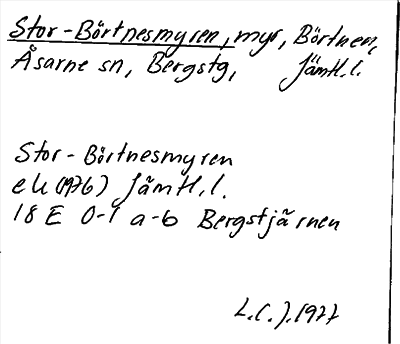 Stor-Börtnesmyren, myr, Börtnen,
Åsarne sn, Bergstg, Jämtl.l.
Stor-Börtnesmyren
ek (1976) Jämtl.l.
18 E 0-1 a-b Bergstjärnen
L.C.J. 1977